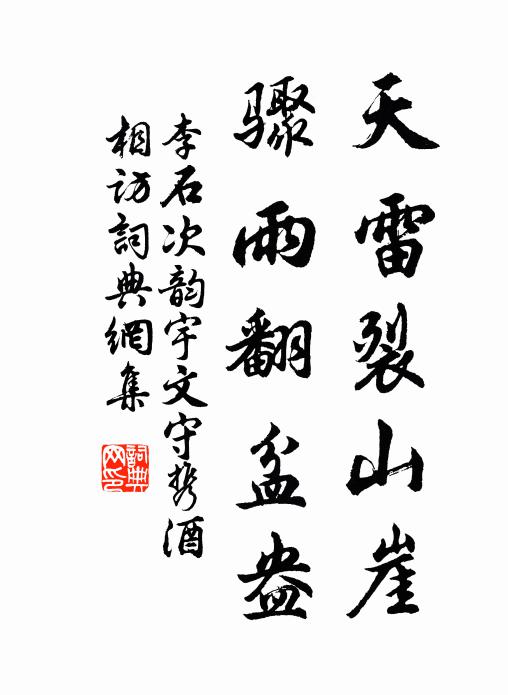 天雷裂山崖
骤雨翻盆盎
李石次韵宇文守携酒
相访詞典網集
詞典网印